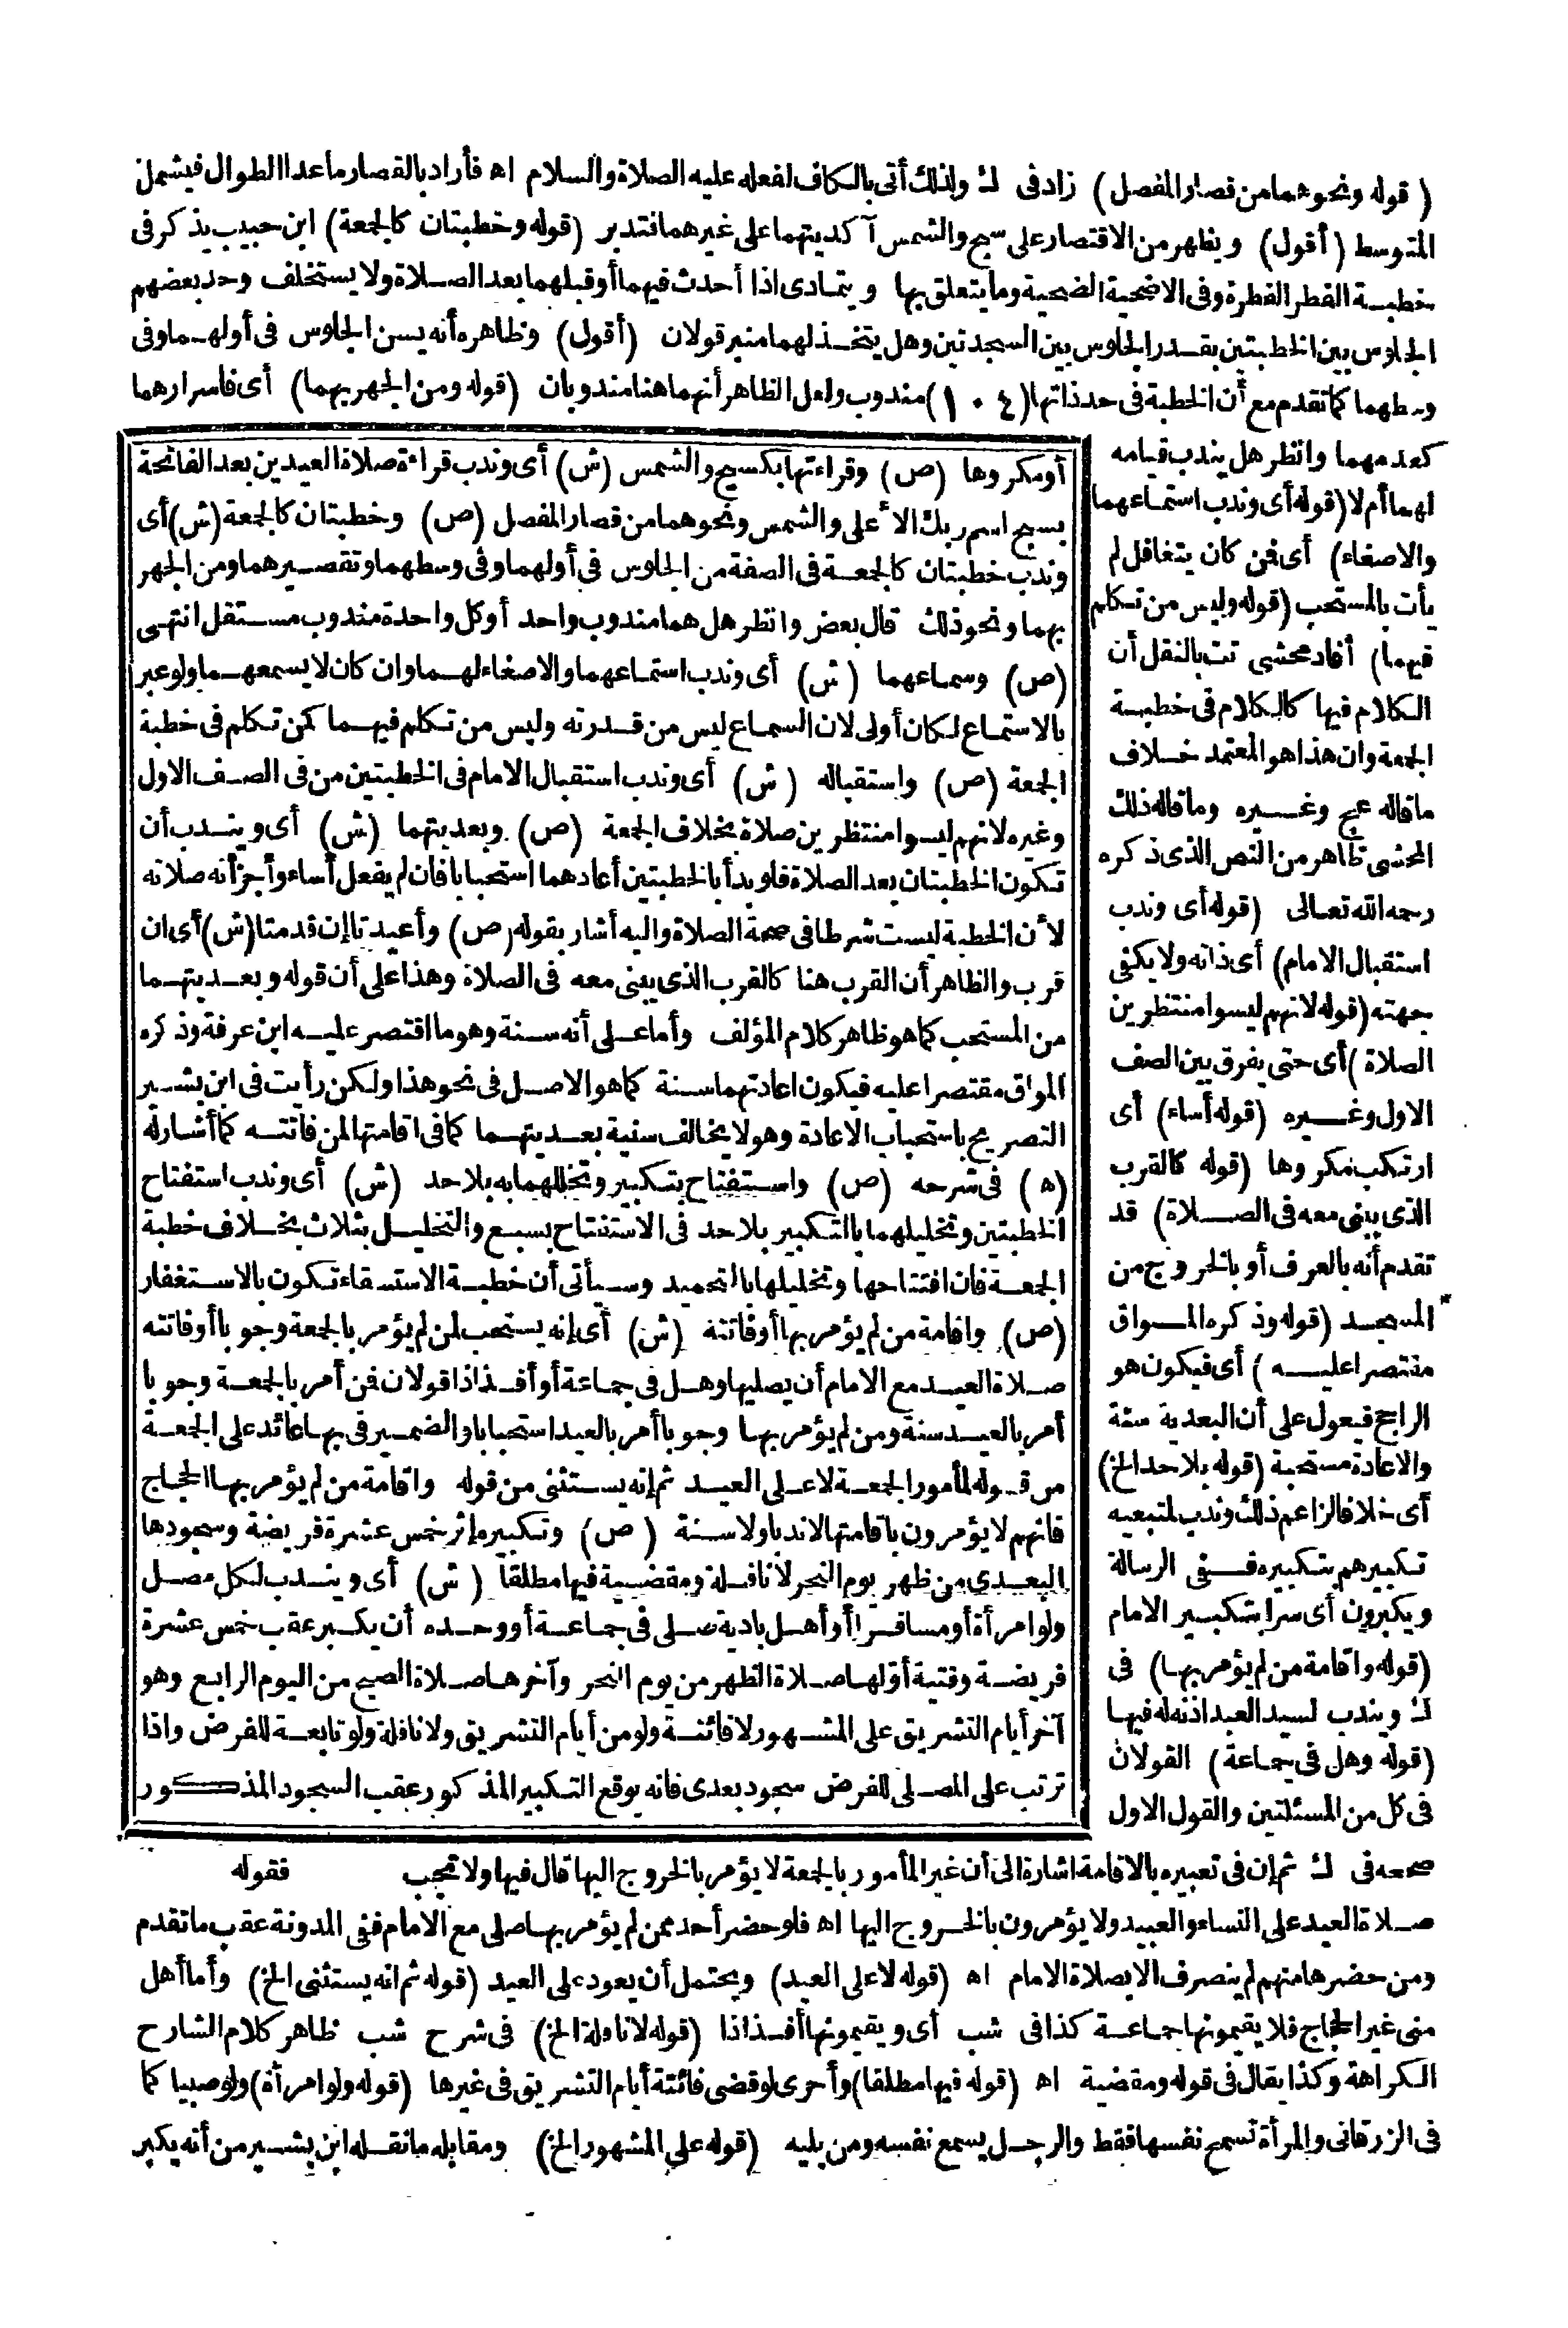 ( قوله ونحوهما من قصار المفصل) زاد فى ك ولذلك أتى بالكاف لفعله عليه الصلاة والسلام اه فأراد بالقصار ما عدا الطوال فيشمل
المتوسط (أقول) ويظهر من الاقتصار على سبح والشمس آكديتهما على غيرهما فتدبر (قوله وخطبتان كالجمعة) ابن حبيب يذكر فى
خطبة الفطر الفطرة وفى الاضحية الضحية وما يتعلق بها ويتمادى اذا أحدث فيهما أو قبلهما بعد الصلاة ولا يستخلف وحد بعضهم
الجلوس بين الخطبتين بقدر الجلوس بين السجدتين وهل يتخذ لهما منبر قولان (أقول) وظاهره أنه يسن الجلوس فى أولهما وفى
وسطهما كما تقدم مع أن الخطبة فى حد ذاتها (١٠٤) مندوب ولعل الظاهر أنهما هنا مندوبان (قوله ومن الجهر بهما) أى فاسرارهما
كعدمهما وانظر هل يندب قيامه
لهما أم لا (قوله أى وندب استماعهما
والاصغاء) أى فمن كان يتغافل لم
يأت بالمستحب (قوله وليس من تكلم
فيهما) أفاد محشى تت بالنقل أن
الكلام فيها كالكلام فى خطبة
الجمعة وان هذا هو المعتمد خلاف
ما قاله عج وغيره وما قاله ذلك
المحشى ظاهر من النص الذى ذكره
رحمه الله تعالى (قوله أى وندب
استقبال الامام) أى ذاته ولا يكفى
جهته (قوله لانهم ليسوا منتظرين
الصلاة) أى حتى يفرق بين الصف
الاول وغيره (قوله أساء) أى
ارتكب مكروها (قوله كالقرب
الذى يبنى معه فى الصلاة) قد
تقدم أنه بالعرف أو بالخروج من
المسجد (قوله وذكره المواق
مقتصرا عليه) أى فيكون هو
الراجح فيعول على أن البعدية سنة
والاعادة مستحبة (قوله بلا حد الخ)
أى خلافا لزاعم ذلك وندب لمتبعيه
تكبيرهم بتكبيره ففى الرسالة
ويكبرون أى سرا بتكبير الامام
(قوله واقامة من لم يؤمر بها) فى
ك ويندب لسيد العبد اذنه له فيها
(قوله وهل فى جماعة) القولان
فى كل من المسئلتين والقول الاول
أو مكروها (ص) وقراءتها بكسبح والشمس (ش) أى وندب قراءة صلاة العيدين بعد الفاتحة
بسبح اسم ربك الأعلى والشمس ونحوهما من قصار المفصل (ص) وخطبتان كالجمعة (ش) أى
وندب خطبتان كالجمعة فى الصفة من الجلوس فى أولهما وفى وسطهما وتقصيرهما ومن الجهر
بهما ونحو ذلك قال بعض وانظر هل هما مندوب واحد أو كل واحدة مندوب مستقل انتهى
(ص) وسماعهما (ش) أى وندب استماعهما والاصغاء لهما وان كان لا يسمعهما ولو عبر
بالاستماع لكان أولى لان السماع ليس من قدرته وليس من تكلم فيهما كمن تكلم فى خطبة
الجمعة (ص) واستقباله (ش) أى وندب استقبال الامام فى الخطبتين من فى الصف الاول
وغيره لانهم ليسوا منتظرين صلاة بخلاف الجمعة (ص) وبعديتهما (ش) أى ويندب أن
تكون الخطبتان بعد الصلاة فلو بدأ بالخطبتين أعادهما استحبابا فان لم يفعل أساء وأجزأته صلاته
لأن الخطبة ليست شرطا فى صحة الصلاة واليه أشار بقوله (ص) وأعيدتا إن قدمتا (ش) أى ان
قرب والظاهر أن القرب هنا كالقرب الذى يبنى معه فى الصلاة وهذا على أن قوله وبعديتهما
من المستحب كما هو ظاهر كلام المؤلف وأما على أنه سنة وهو ما اقتصر عليه ابن عرفة وذكره
المواق مقتصرا عليه فيكون اعادتهما سنة كما هو الاصل فى نحو هذا ولكن رأيت فى ابن بشير
التصريح باستحباب الاعادة وهو لا يخالف سنية بعديتهما كما فى اقامتها لمن فاتته كما أشار له
(ه) فى شرحه (ص) واستفتاح بتكبير وتخللهما به بلا حد (ش) أى وندب استفتاح
الخطبتين وتخليلهما بالتكبير بلا حد فى الاستفتاح بسبع والتخليل بثلاث بخلاف خطبة
الجمعة فان افتتاحها وتخليلها بالتحميد وسيأتى أن خطبة الاستسقاء تكون بالاستغفار
(ص) واقامة من لم يؤمر بها أو فاتته (ش) أى إنه يستحب لمن لم يؤمر بالجمعة وجوبا أو فاتته
صلاة العيد مع الامام أن يصليها وهل فى جماعة أو أفذاذا قولان فمن أمر بالجمعة وجوبا
أمر بالعيد سنة ومن لم يؤمر بها وجوبا أمر بالعيد استحبابا والضمير فى بها عائد على الجمعة
من قوله لمأمور الجمعة لا على العيد ثم إنه يستثنى من قوله واقامة من لم يؤمر بها الحجاج
فانهم لا يؤمرون باقامتها لا ندبا ولا سنة (ص) وتكبيره إثر خمس عشرة فريضة وسجودها
البعدى من ظهر يوم النحر لا نافلة ومقضية فيها مطلقا (ش) أى ويندب لكل مصل
ولو امرأة أو مسافرا أو أهل بادية صلى فى جماعة أو وحده أن يكبر عقب خمس عشرة
فريضة وقتية أولها صلاة الظهر من يوم النحر وآخرها صلاة الصبح من اليوم الرابع وهو
آخر أيام التشريق على المشهور لا فائتة ولو من أيام التشريق ولا نافلة ولو تابعة للفرض واذا
ترتب على المصلى للفرض سجود بعدى فانه يوقع التكبير المذكور عقب السجود المذكور
صححه فى ك ثم إن فى تعبيره بالاقامة اشارة الى أن غير المأمور بالجمعة لا يؤمر بالخروج اليها قال فيها ولا تجب فقوله
صلاة العيد على النساء والعبيد ولا يؤمرون بالخروج اليها اه فلو حضر أحد ممن لم يؤمر بها صلى مع الامام ففى المدونة عقب ما تقدم
ومن حضرها منهم لم ينصرف الا بصلاة الامام اه (قوله لا على العيد) ويحتمل أن يعود على العيد (قوله ثم انه يستثنى الخ) وأما أهل
منى غير الحجاج فلا يقيمونها جماعة كذا فى شب أى ويقيمونها أفذاذا (قوله لا نافلة الخ) فى شرح شب ظاهر كلام الشارح
الكراهة وكذا يقال فى قوله ومقضية اه (قوله فيها مطلقا) وأحرى لو قضى فائتة أيام التشريق فى غيرها (قوله ولو امرأة) ولو صبيا كما
فى الزرقانى والمرأة تسمع نفسها فقط والرجل يسمع نفسه ومن يليه (قوله على المشهور الخ) ومقابله ما نقله ابن بشير من أنه يكبر